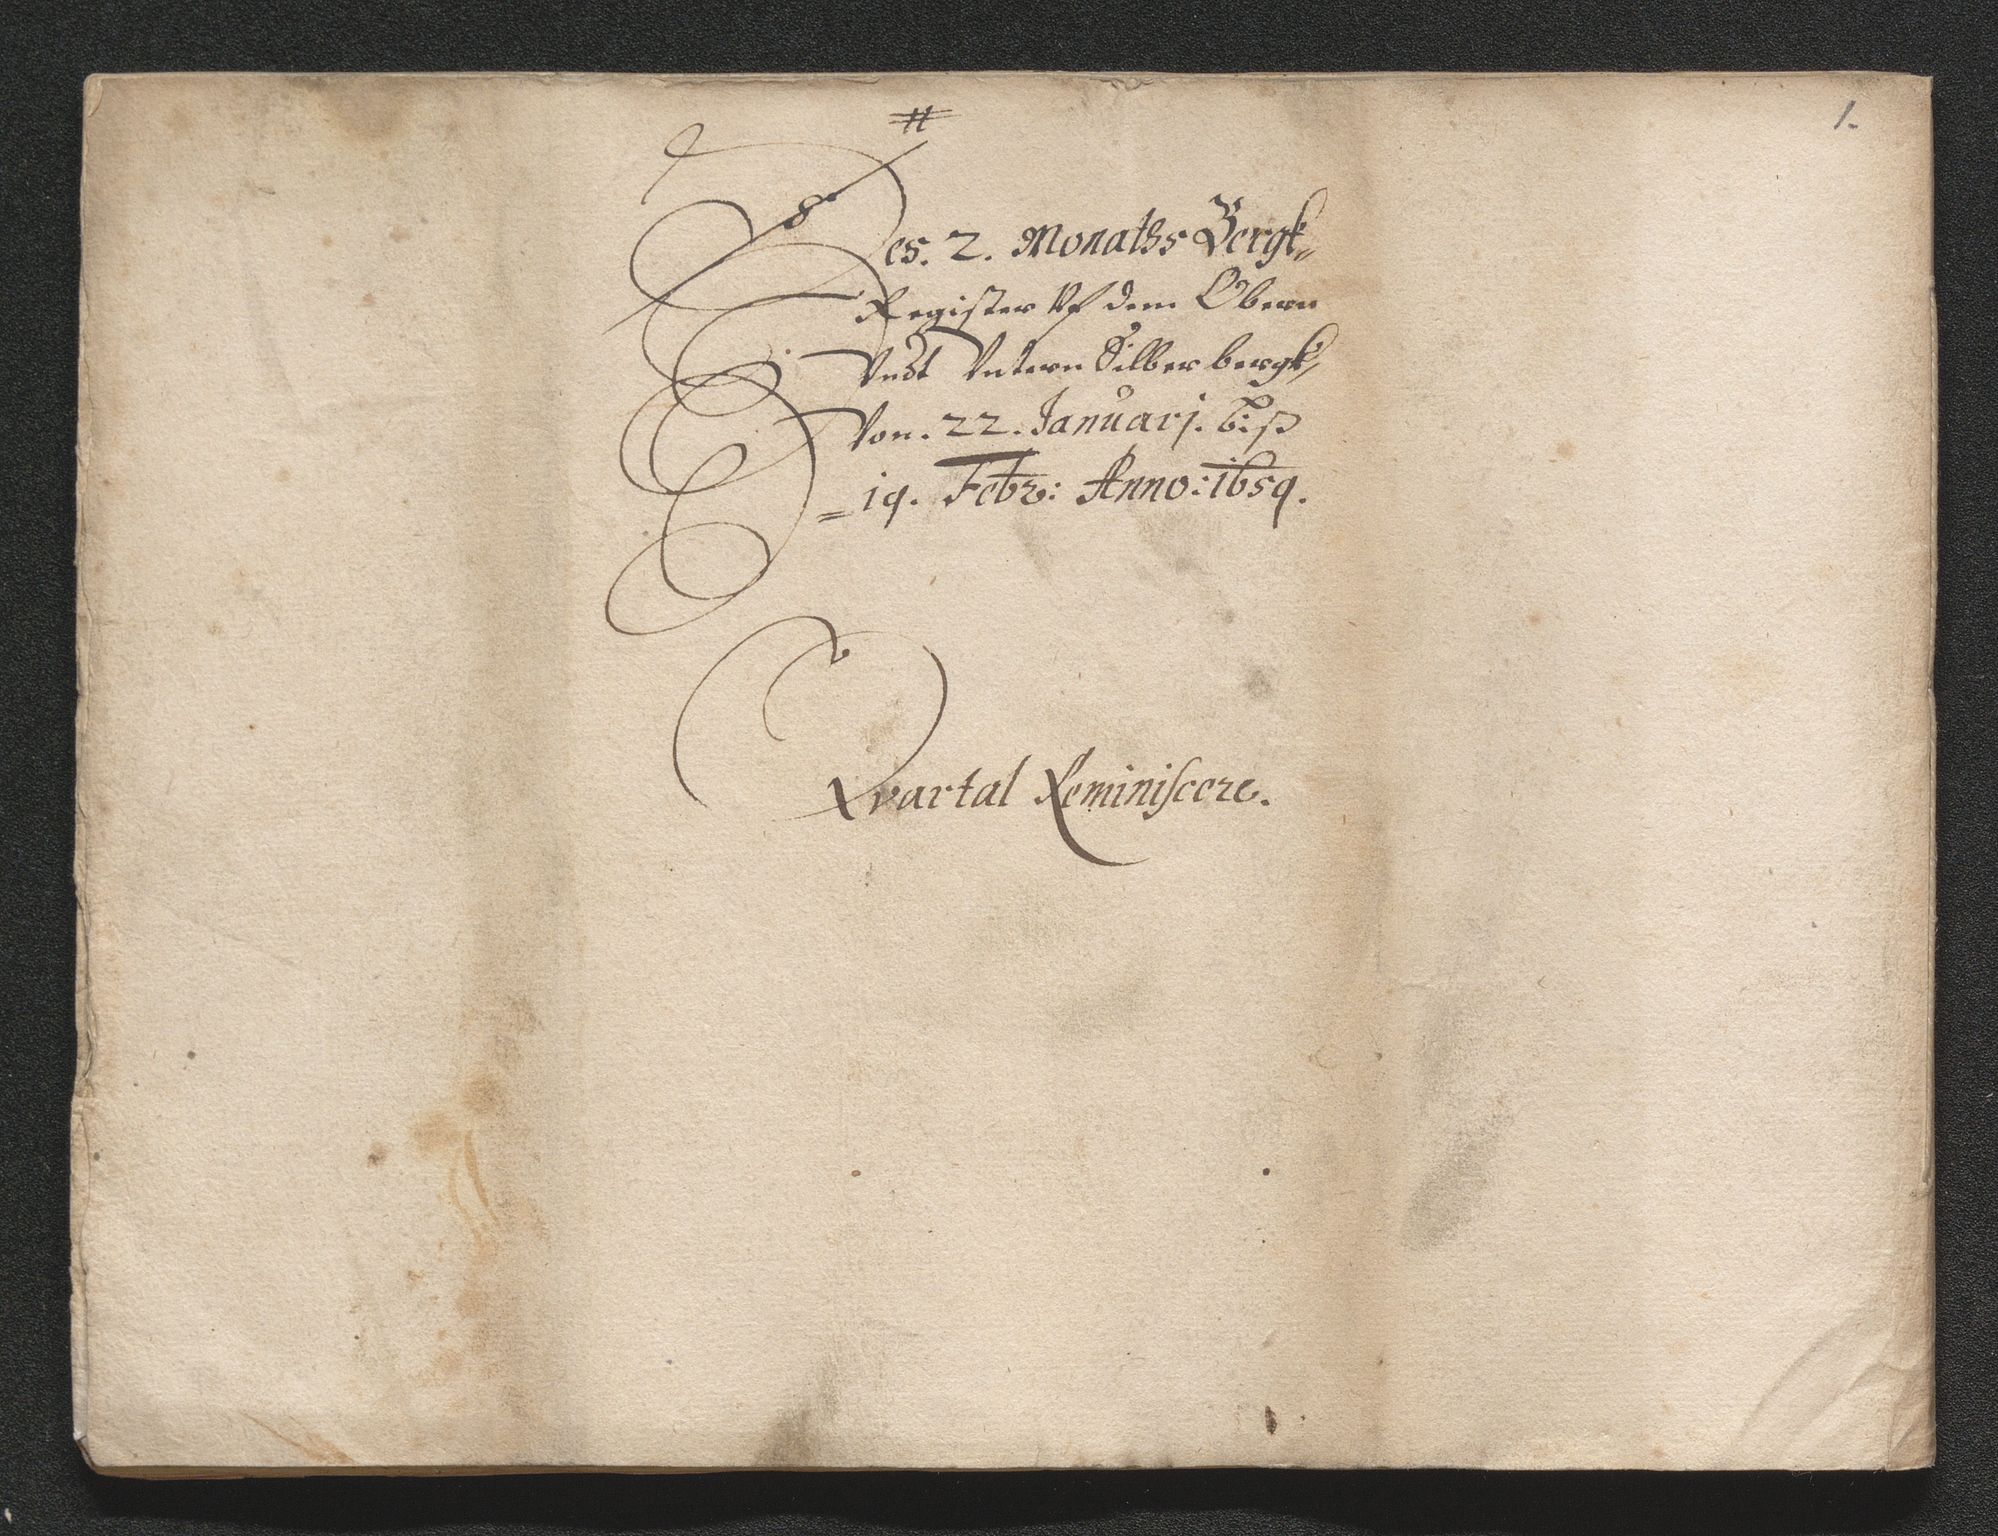 1.
#
Des. 2. Monaths Bergk=
Register Vf dem Obern
Vndt Vntern Silberbergk,
Von. 22. Januarj. biß
= 19. Febr: Anno: 1659.
Qvartal Reminiscere.